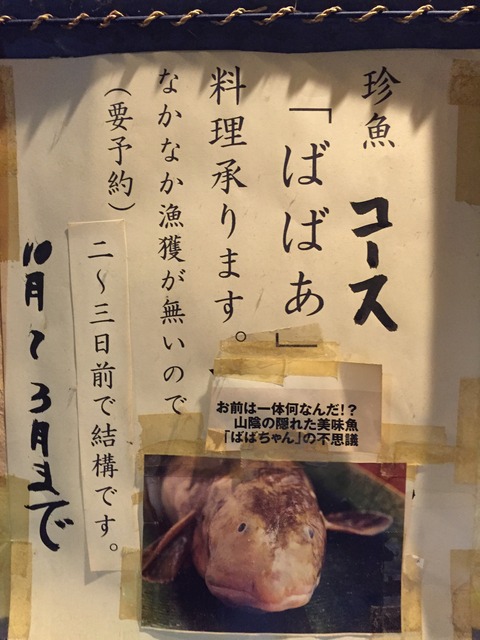 珍魚 コース
「ばばあ」
料理承ります。
なかなか漁獲が無いので
（要予約）
二～三日前で結構です。
10月〜3月まで
お前は一体何なんだ!？
山陰の隠れた美味魚
「ばばちゃん」の不思議